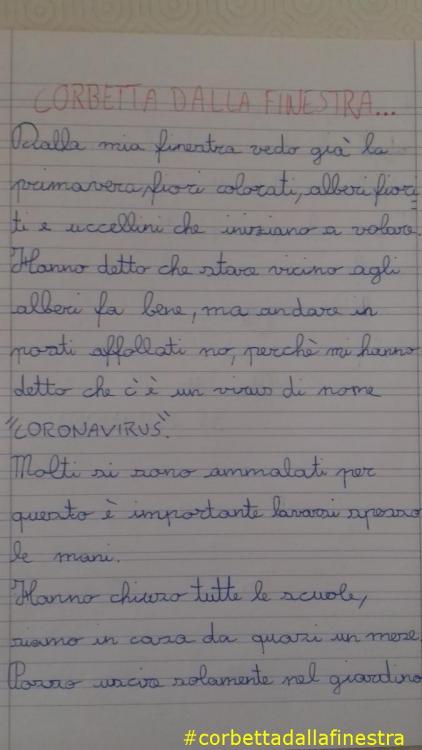 CORBETTA DALLA FINESTRA...
Dalla mia finestra vedo già la
primavera, fiori colorati, alberi fiori
ti e uccellini che iniziano a volare.
Hanno detto che stare vicino agli
alberi fa bene, ma andare in
posti affollati no, perchè mi hanno
detto che c'è un virus di nome
"CORONAVIRUS".
Molti si sono ammalati per
questo è importante lavarsi spesso
le mani.
Hanno chiuso tutte le scuole,
siamo in casa da quasi un mese.
Posso uscire solamente nel giardino
#corbettadallafinestra